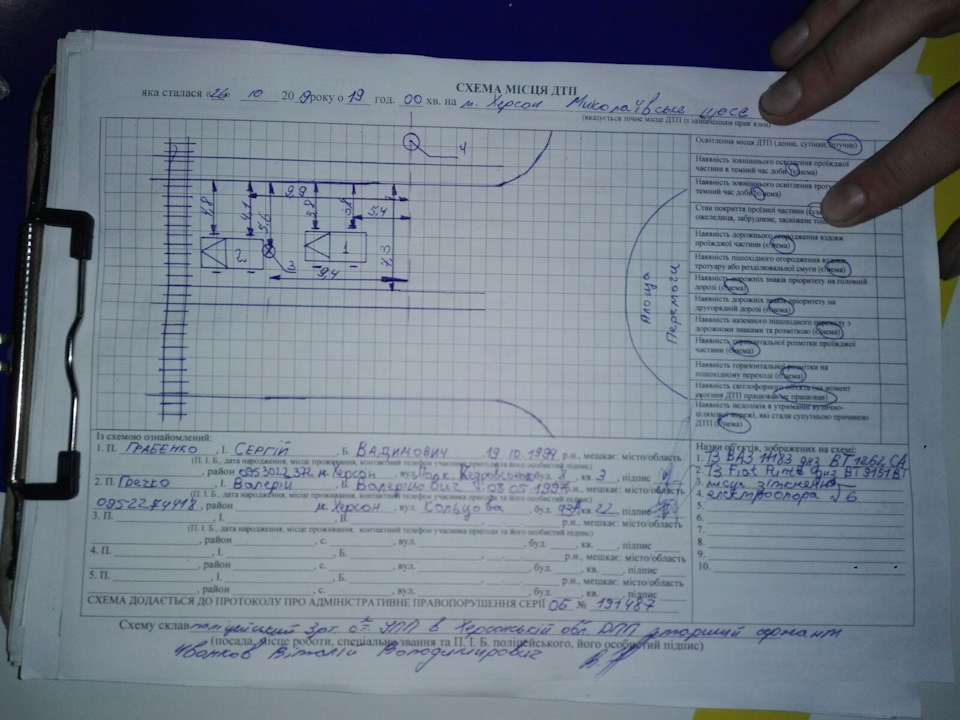 СХЕМА МІСЦЯ ДТП
яка сталася «26» 10 2019 року о 19 год. 00 хв. на м. Херсон Миколаївське шосе
(вказується точне місце ДТП із зазначенням прив'язки)
4
9.9
4.8
4.1
5.6
3.8
3.8
5.4
7.3
2
1
3
9.4
Площа
Перемоги
Освітлення місця ДТП (денне, сутінки, штучне)
Наявність зовнішнього освітлення проїжджої
частини в темний час доби (є/нема)
Наявність зовнішнього освітлення
темний час доби (є/нема)
Стан покриття проїзної частини
ожеледиця, забруднене, засніжене
Наявність дорожнього огородження вздовж
проїжджої частини (є/нема)
Наявність пішохідного огородження вздовж
тротуару або розділювальної смуги (є/нема)
Наявність дорожніх знаків пріоритету на головній
дорозі (є/нема)
Наявність дорожніх знаків пріоритету на
другорядній дорозі (є/нема)
Наявність наземного пішохідного переходу з
дорожніми знаками та розміткою (є/нема)
Наявність горизонтальної розмітки проїжджої
частини (є/нема)
Наявність горизонтальної розмітки на
пішохідному переході (є/нема)
Наявність світлофорного об'єкта (на момент
скоєння ДТП працював/не працював)
Наявність недоліків в утриманні вулично-
шляхової мережі, які стали супутньою причиною
ДТП (є/нема)
Із схемою ознайомлений:
1. П. ГРАБЕНКО, І. СЕРГІЙ, Б. ВАДИМОВИЧ 19.10.1994 р.н., мешкає: місто/область
(П. І. Б., дата народження, місце проживання, контактний телефон учасника пригоди та його особистий підпис)
район м. Херсон, вул. буд. кв. 3, підпис
2. П. Гречко, І. Валерій, Б. Валерійович 08.05.1997 р.н., мешкає: місто/область
(П. І. Б., дата народження, місце проживання, контактний телефон учасника пригоди та його особистий підпис)
0952274418, район м. Херсон, вул. Кольцова, буд. кв. 22, підпис
3. П. , І. , Б. р.н., мешкає: місто/область
(П. І. Б., дата народження, місце проживання, контактний телефон учасника пригоди та його особистий підпис)
, район , с. , вул. , буд. , кв. , підпис
4. П. , І. , Б. р.н., мешкає: місто/область
, район , с. , вул. , буд. , кв. , підпис
5. П. , І. , Б. р.н., мешкає: місто/область
, район , с. , вул. , буд. , кв. , підпис
Назви об'єктів, зображених на схемі:
1. ТЗ ВАЗ 11183 днз ВТ 1262 СА
2. ТЗ Fiat днз ВТ 9151 ВТ
3. місце зіткнення
4. електроопора №6
5.
6.
7.
8.
9.
10.
СХЕМА ДОДАЄТЬСЯ ДО ПРОТОКОЛУ ПРО АДМІНІСТРАТИВНЕ ПРАВОПОРУШЕННЯ СЕРІЇ ОБ № 191487
Схему склав поліцейський УПП в Херсонській обл. ДПП старший сержант
(посада, місце роботи, спеціальне звання та П. І. Б. поліцейського, його особистий підпис)
Віталій Володимирович